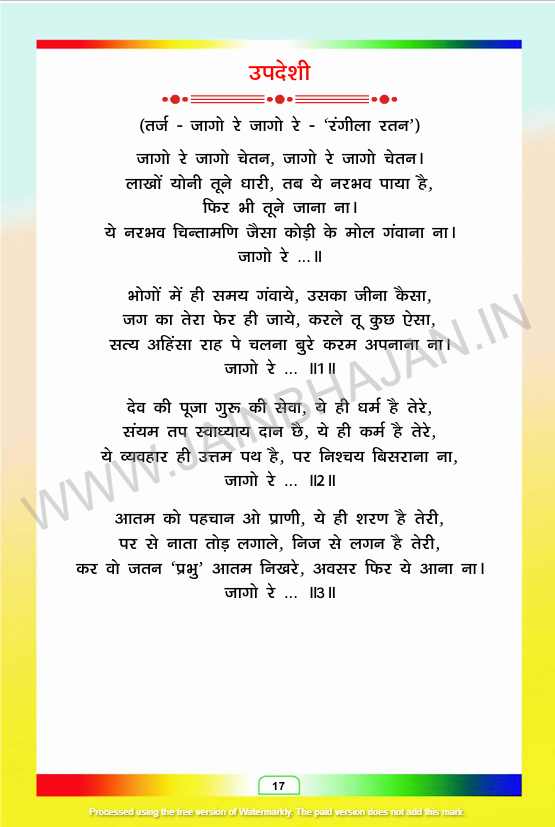 उपदेशी
(तर्ज - जागो रे जागो रे - ‘रंगीला रतन’)
जागो रे जागो चेतन, जागो रे जागो चेतन।
लाखों योनी तूने धारी, तब ये नरभव पाया है,
फिर भी तूने जाना ना।
ये नरभव चिन्तामणि जैसा कोड़ी के मोल गंवाना ना।
जागो रे ...॥
भोगों में ही समय गंवाये, उसका जीना कैसा,
जग का तेरा फेर ही जाये, करले तू कुछ ऐसा,
सत्य अहिंसा राह पे चलना बुरे करम अपनाना ना।
जागो रे ... ॥1॥
देव की पूजा गुरू की सेवा, ये ही धर्म है तेरे,
संयम तप स्वाध्याय दान छै, ये ही कर्म है तेरे,
ये व्यवहार ही उत्तम पथ है, पर निश्चय बिसराना ना,
जागो रे ... ॥2॥
आतम को पहचान ओ प्राणी, ये ही शरण है तेरी,
पर से नाता तोड़ लगाले, निज से लगन है तेरी,
कर वो जतन ‘प्रभु’ आतम निखरे, अवसर फिर ये आना ना।
जागो रे ... ॥3॥
WWW.JAINBHAJAN.IN
17
Processed using the free version of Watermarkly. The paid version does not add this mark.